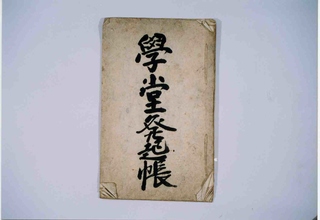 學堂發起帳